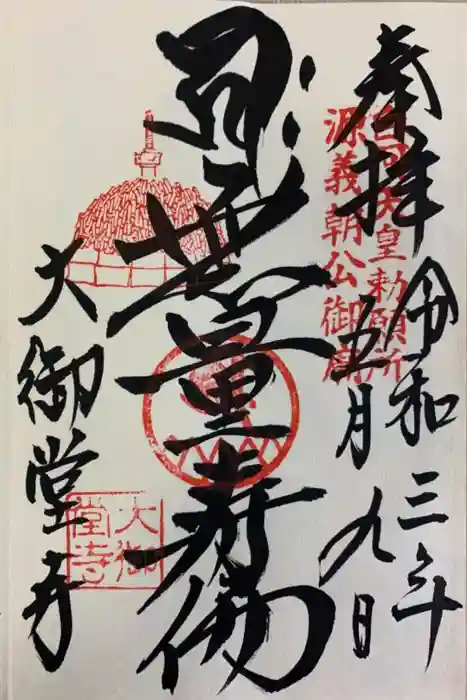 奉拝
令和三年
五月九日
白河天皇勅願所
源義朝公御廟
無量寿佛
大御堂寺
大御
堂寺